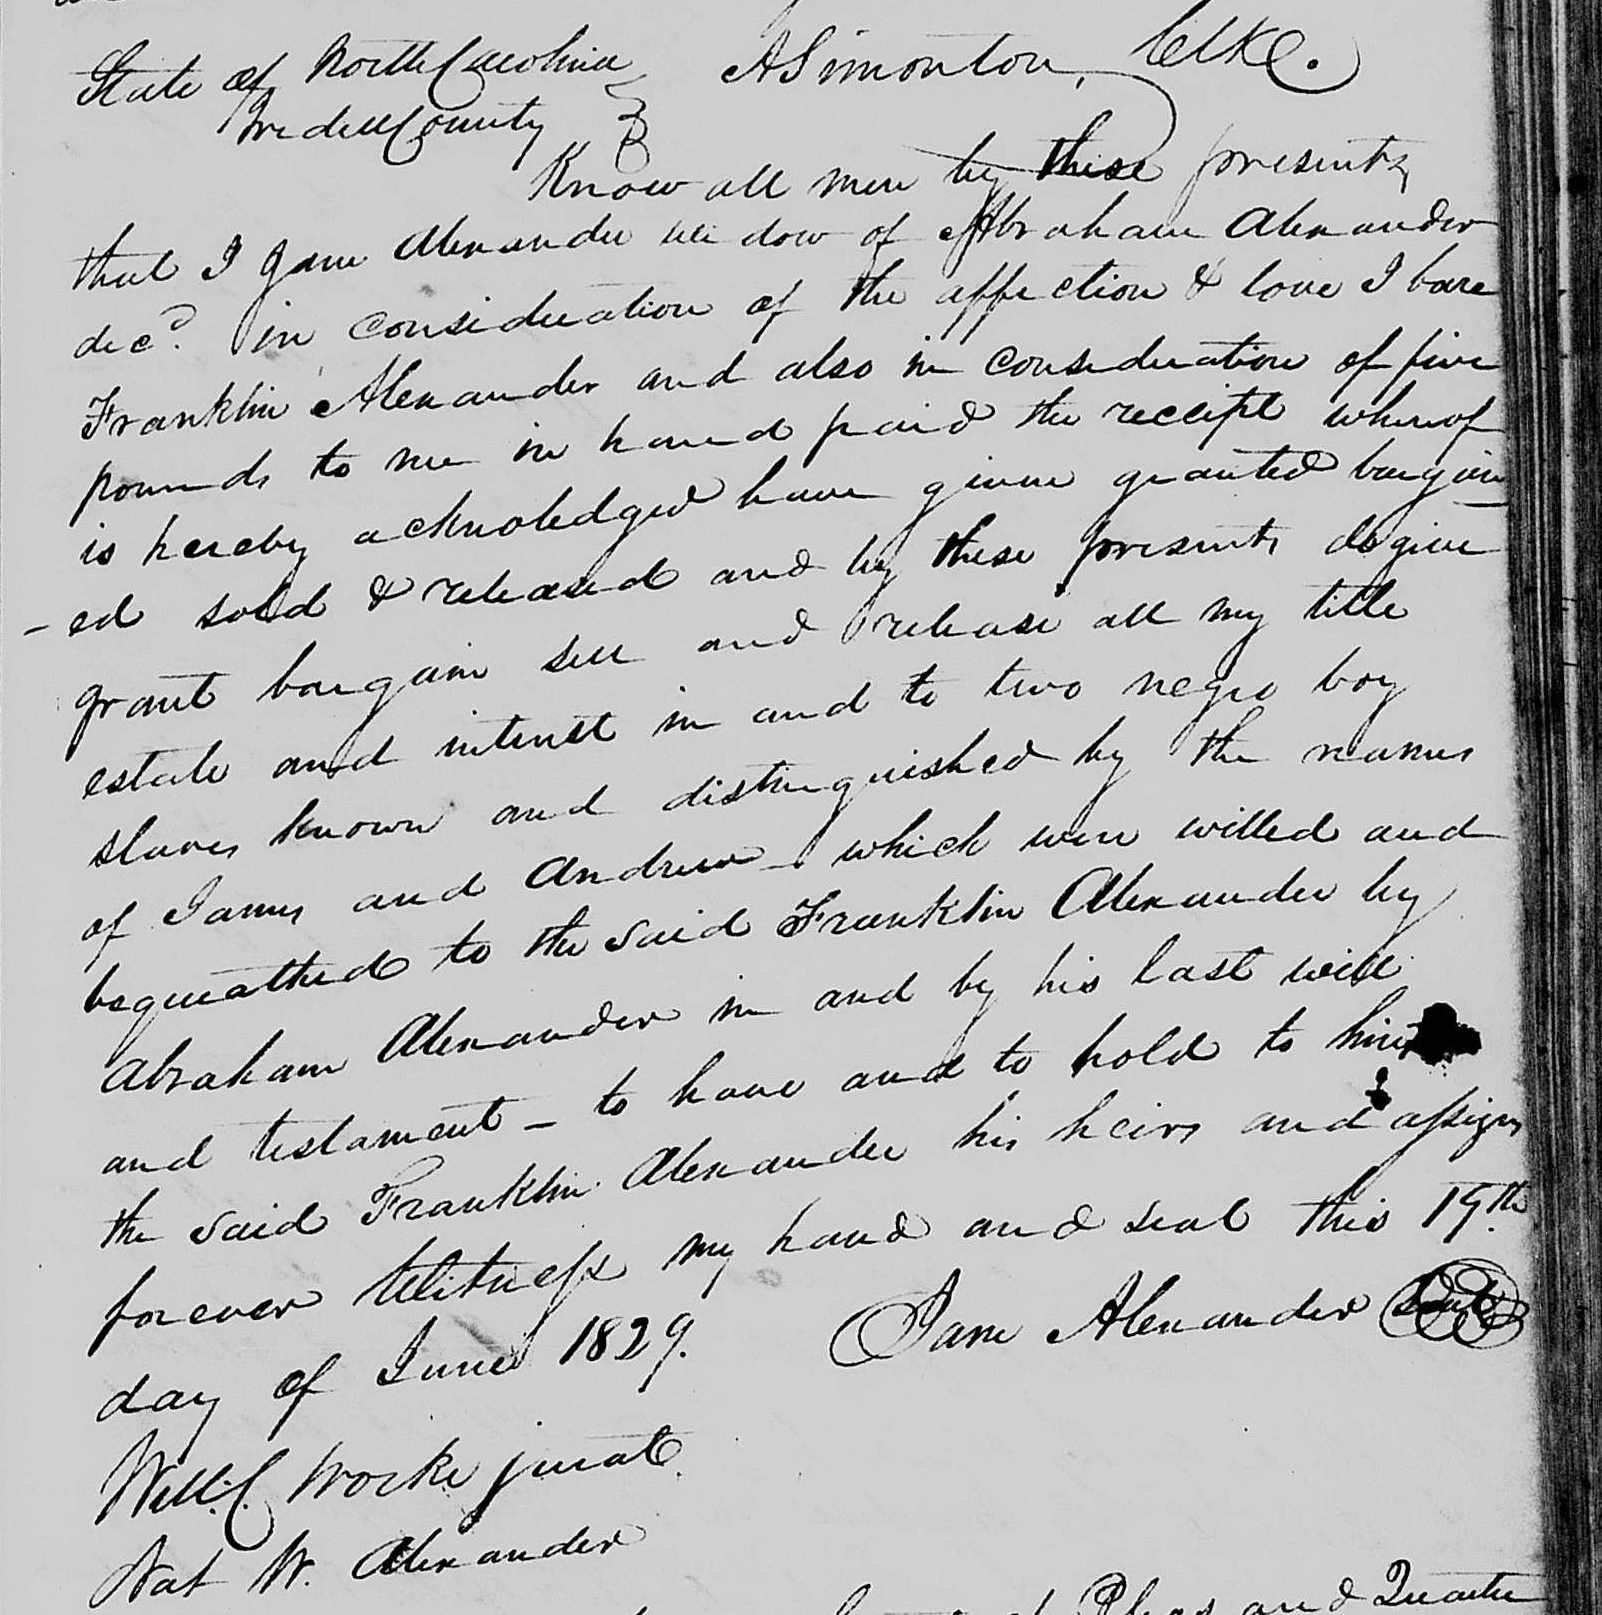 State of North Carolina } A Simonton, Clk.
Iredell County }
Know all men by these presents
that I Jane Alexander widow of Abraham Alexander
decd. in consideration of the affection & love I bare
Franklin Alexander and also in consideration of five
pounds to me in hand paid the receipt whereof
is hereby acknoledged have given granted bargain
-ed sold & released and by these presents do give
grant bargain sell and release all my title
estate and interest in and to two negro boy
slaves known and distinguished by the names
of James and Andrew - which were willed and
bequeathed to the said Franklin Alexander by
Abraham Alexander in and by his last will
and testament - to have and to hold to him
the said Franklin Alexander his heirs and assigns
forever Witness my hand and seal this 19th.
day of June 1829. Jane Alexander Seal
Will. C. Worke jurat
Nat W. Alexander
Pleas and Quarter